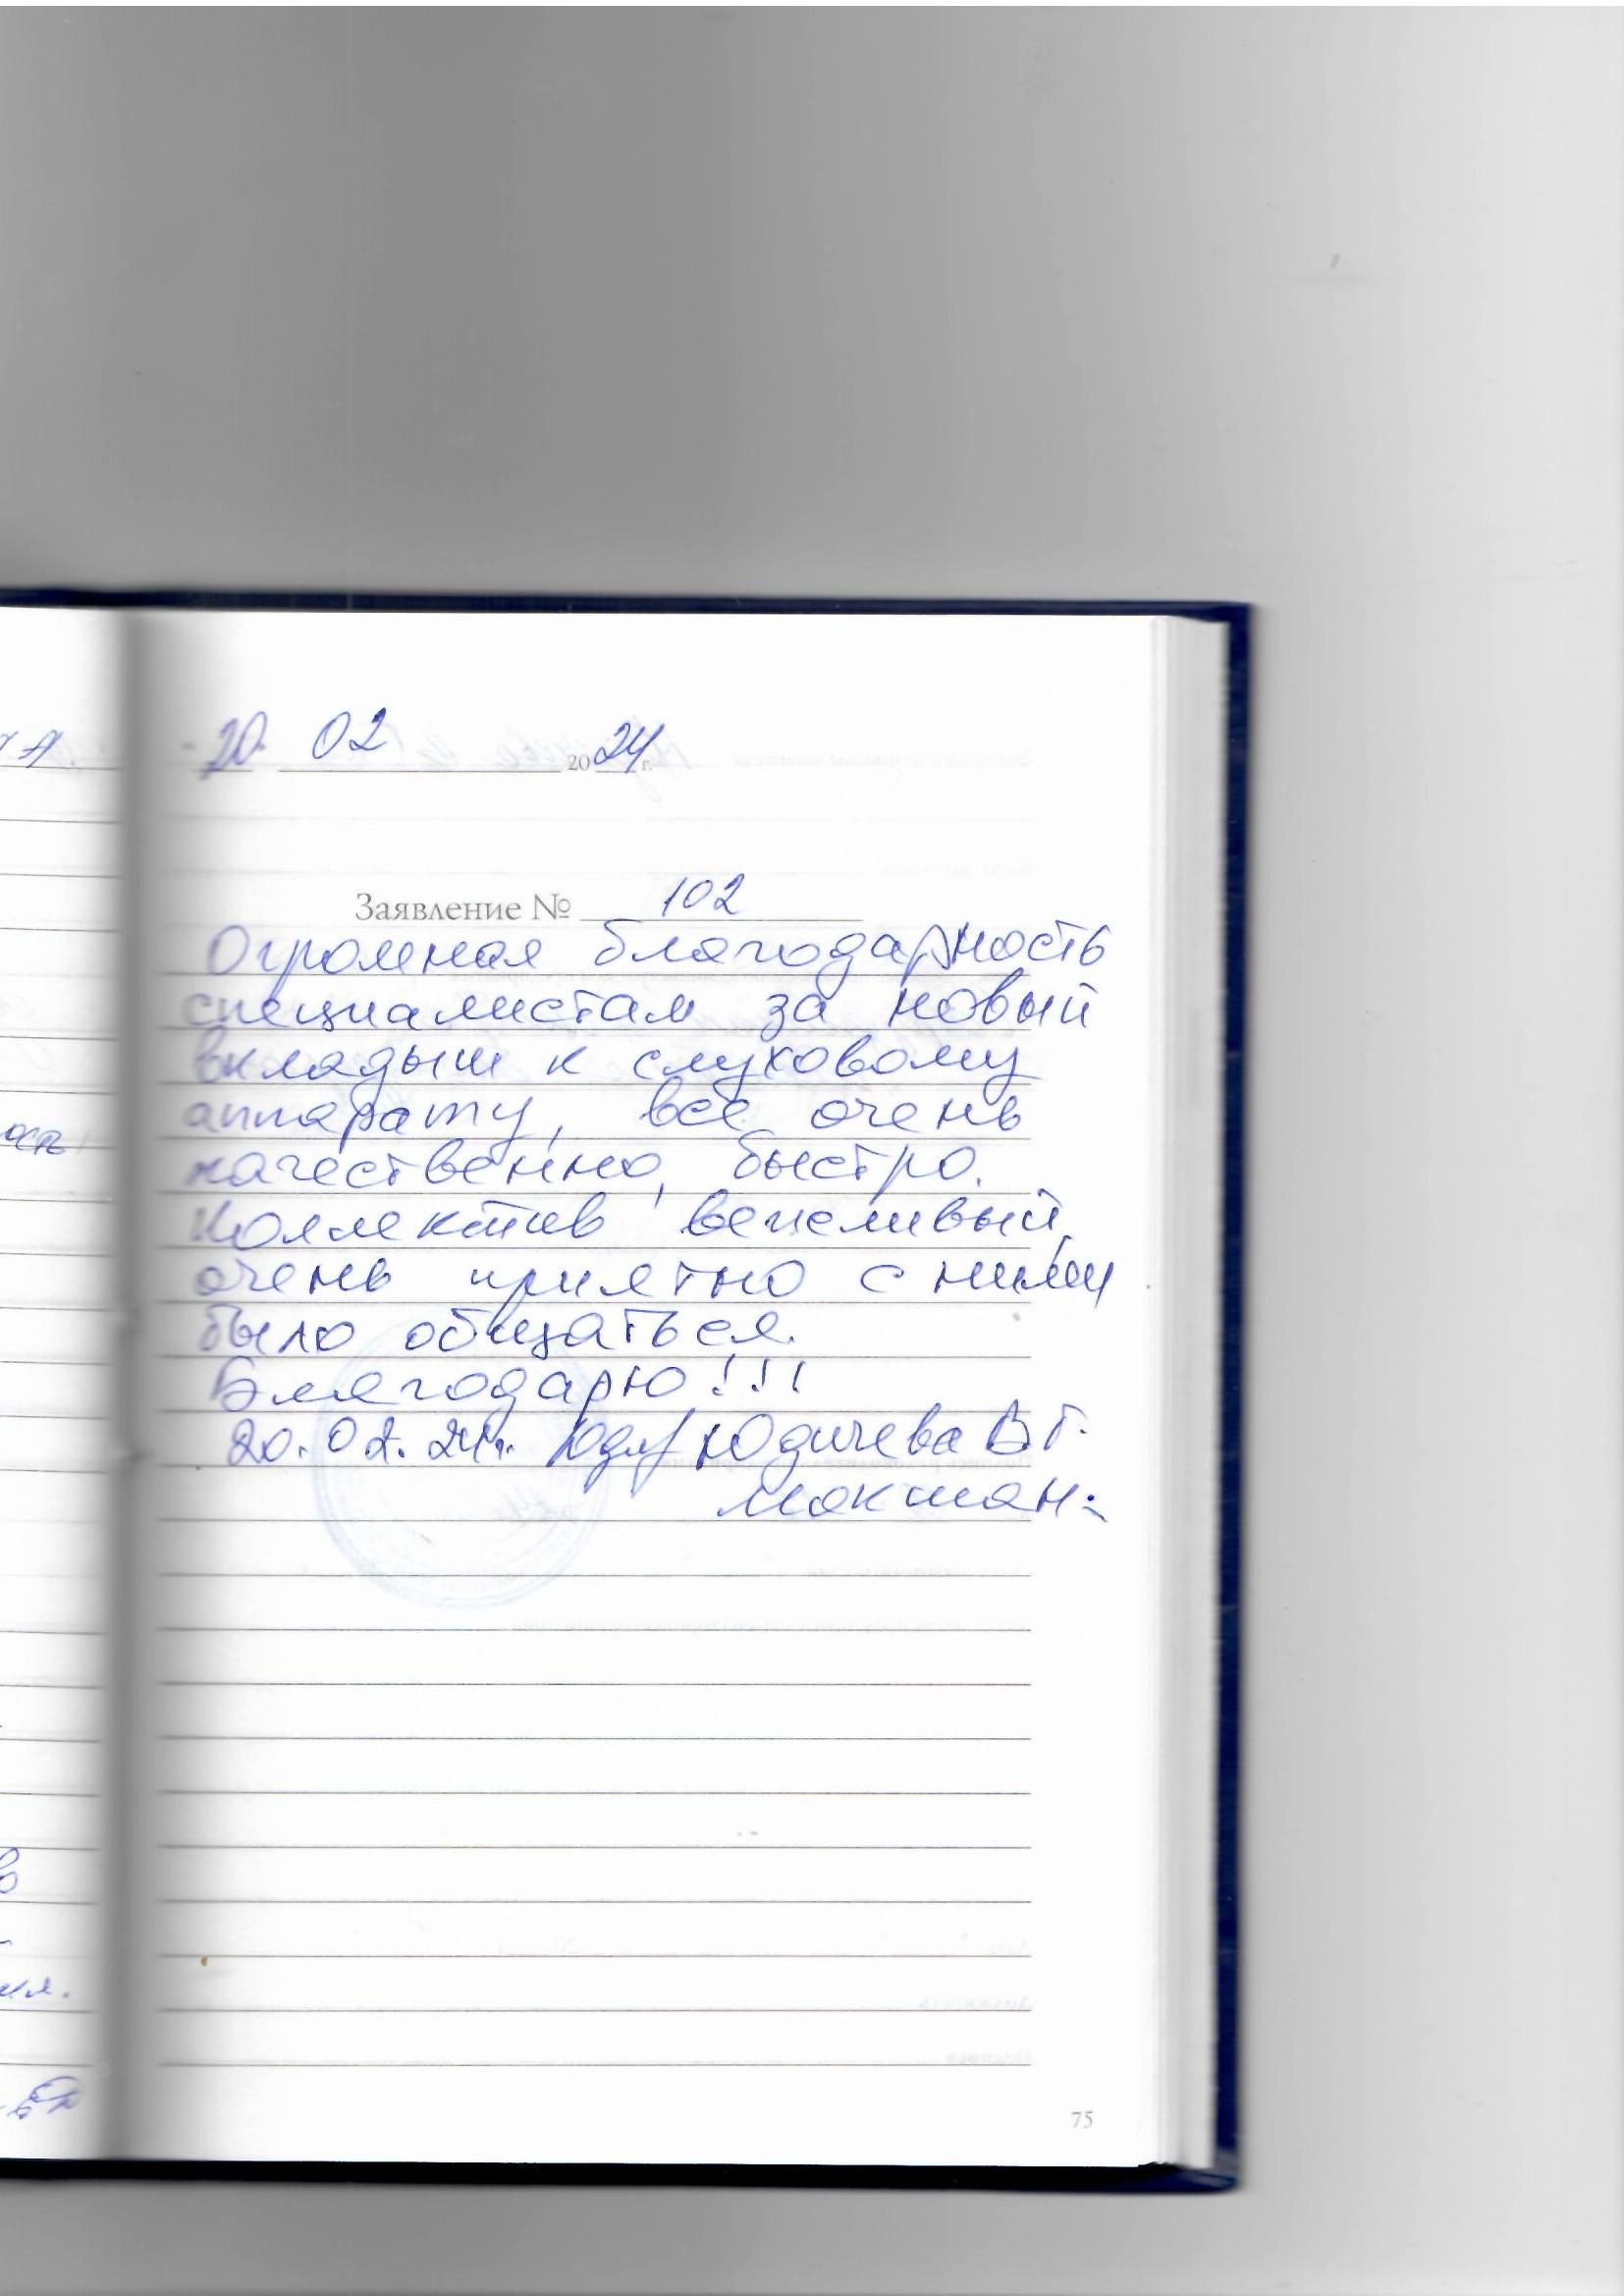 20 02 2024 г.
Заявление № 102
Огромная благодарность
специалистам за новый
вкладыш к слуховому
аппарату, всё очень
качественно, быстро.
Коллектив вежливый,
очень приятно с ними
было общаться.
Благодарю!!!
20.02.24г. Юдичева В Г.
Мокшан.
75